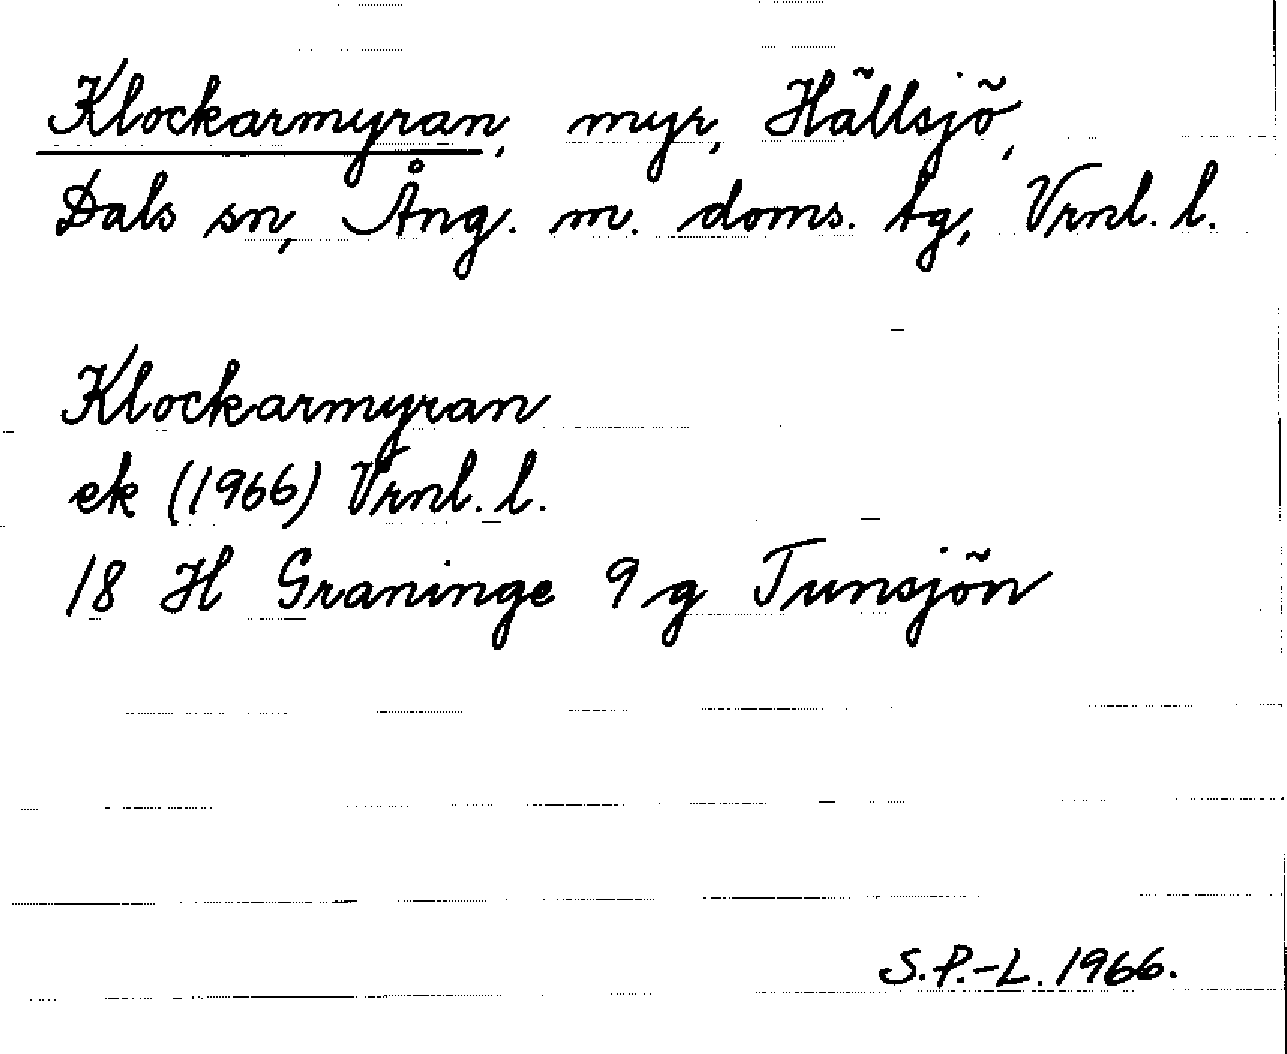 Klockarmyran, myr, Hällsjö,
Dals sn, Ång. m. doms. tg, Vrnl. l.
Klockarmyran
ek (1966) Vrnl. l.
18 H Graninge 9 g Tunsjön
S.P.-L. 1966.